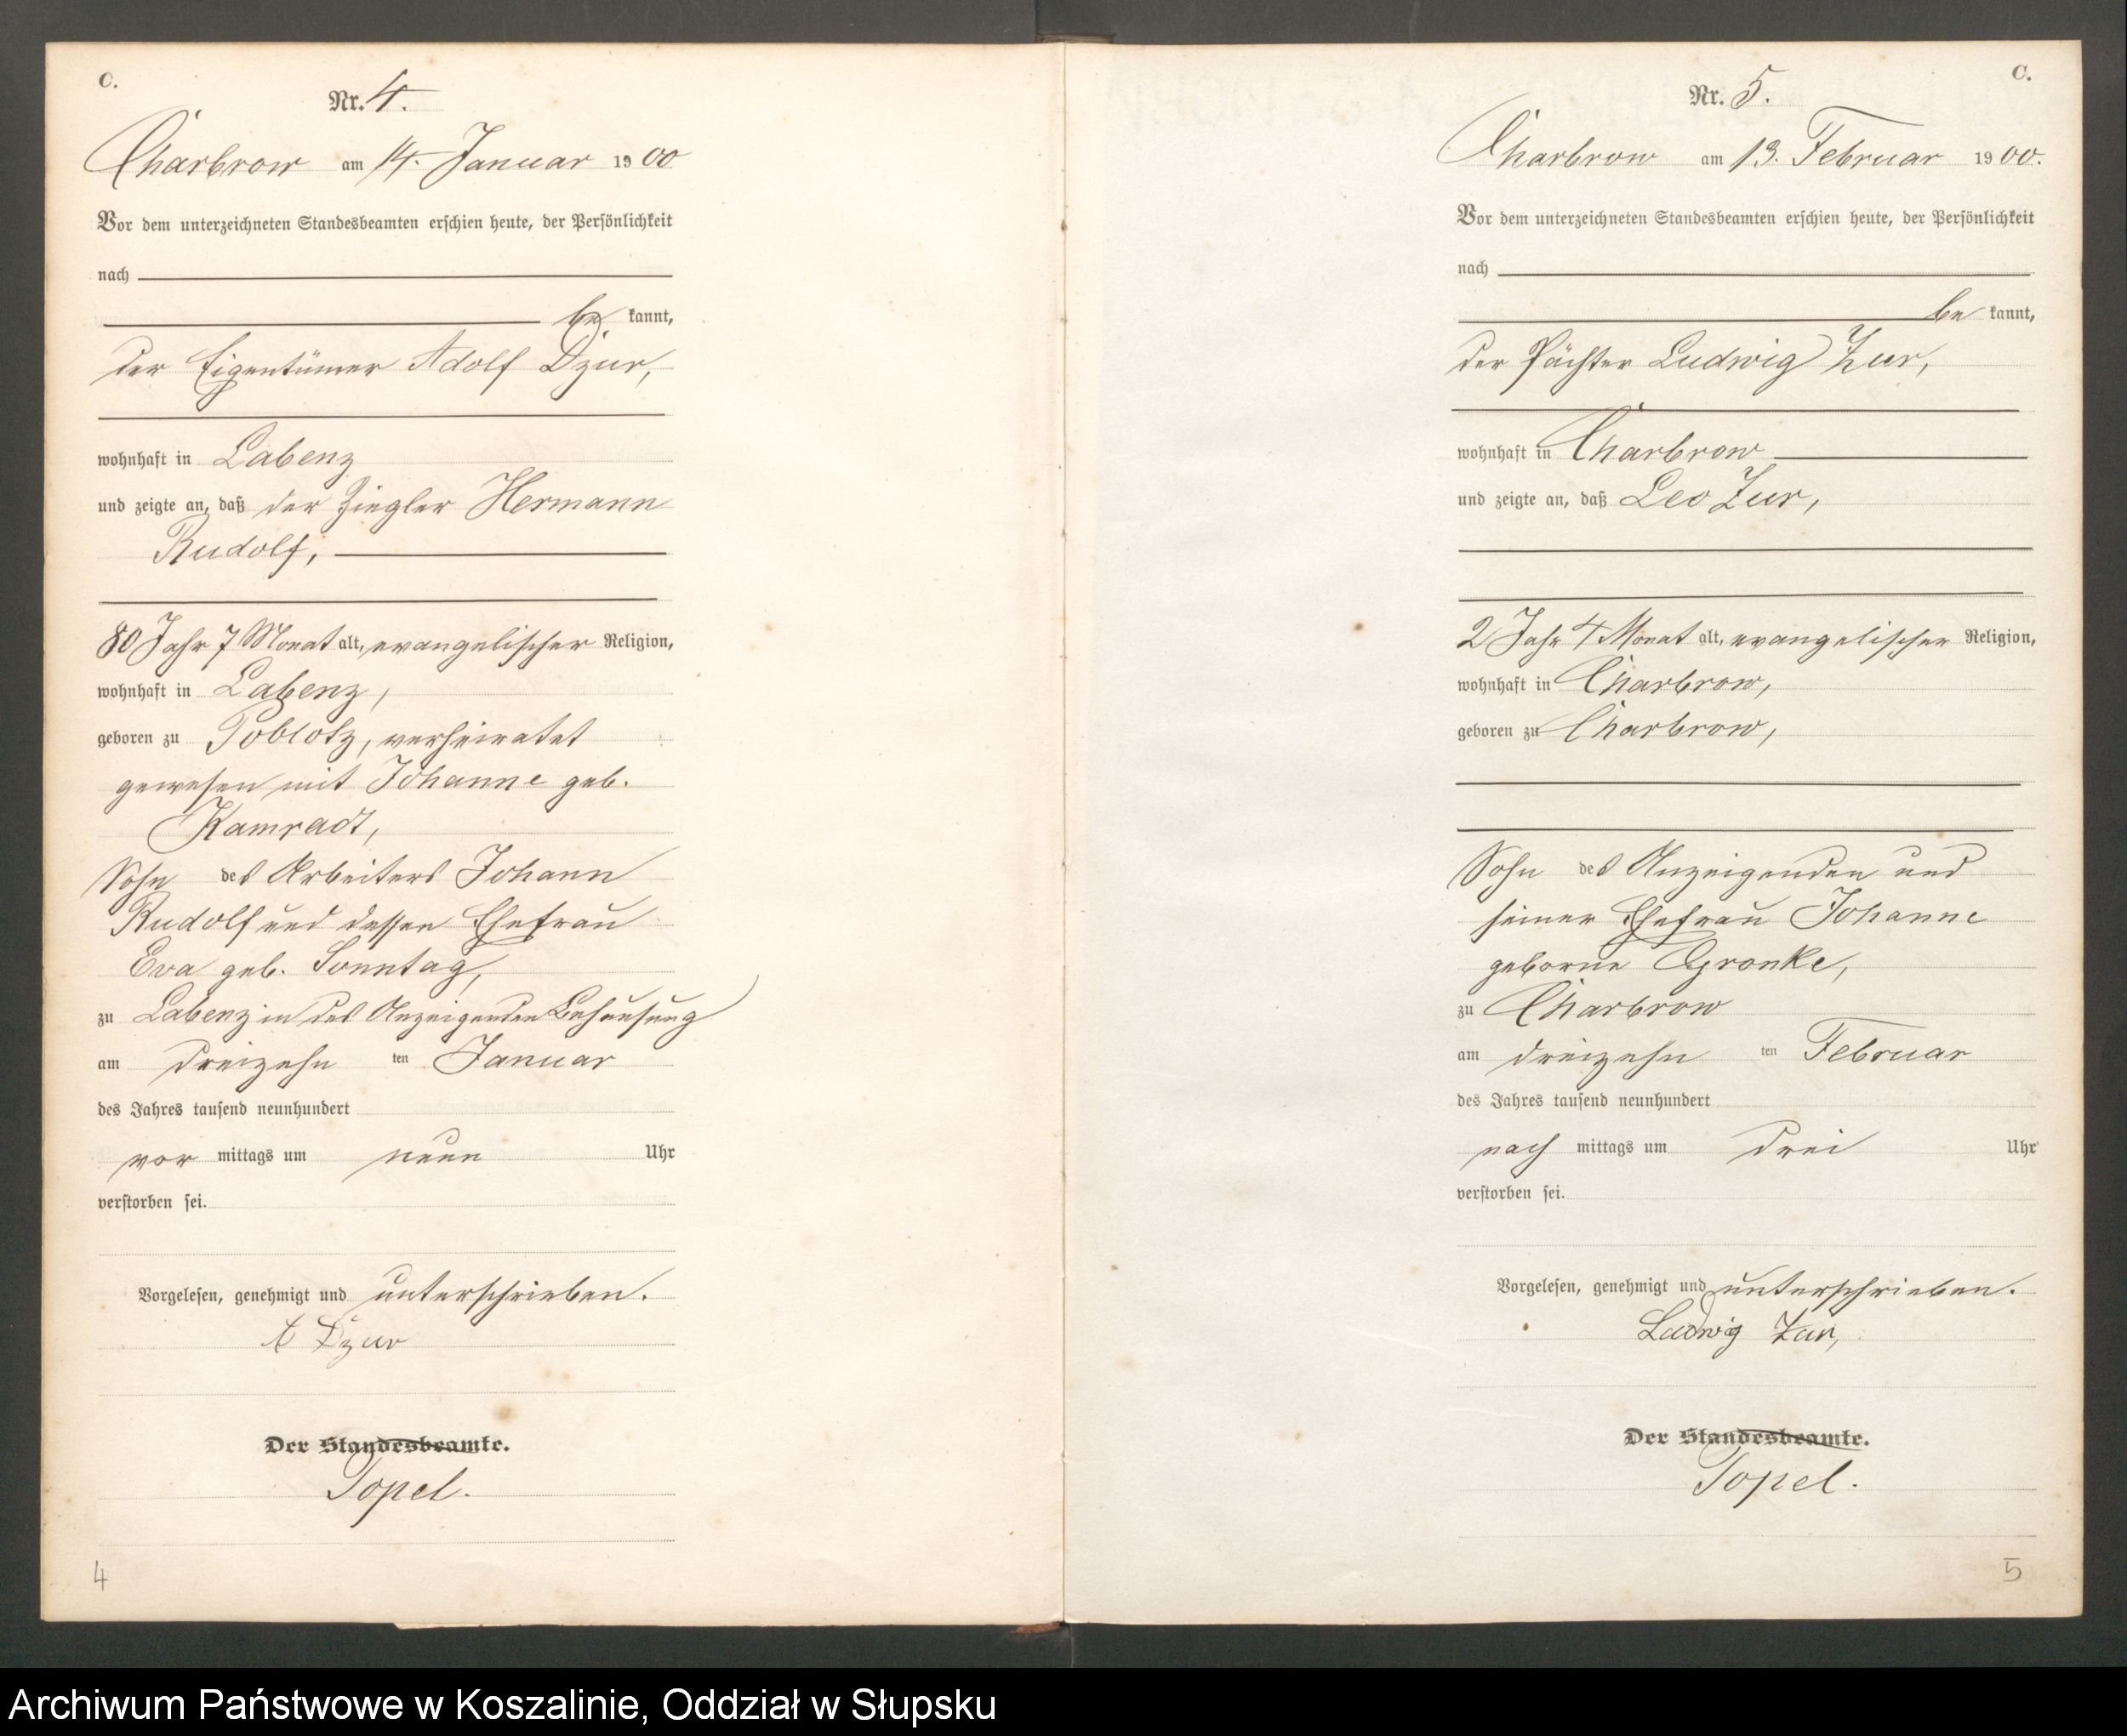 C.
Nr. 4.
Charbrow am 14. Januar 1900
Vor dem unterzeichneten Standesbeamten erschien heute, der Persönlichkeit
nach
be kannt,
der Eigentümer Adolf Dzur,
wohnhaft in Labenz
und zeigte an, daß der Ziegler Hermann
Rudolf,
80 Jahr 7 Monat alt, evangelischer Religion,
wohnhaft in Labenz,
geboren zu Poblotz, verheiratet
gewesen mit Johanne geb.
Kamradt,
Sohn des Arbeiters Johann
Rudolf und dessen Ehefrau
Eva geb. Sonntag,
zu Labenz in des Anzeigenden Behausung
am dreizehn ten Januar
des Jahres tausend neunhundert
vor mittags um neun Uhr
verstorben sei.
Vorgelesen, genehmigt und unterschrieben.
A Dzur
Der Standesbeamte.
Topel.
4
C.
Nr. 5.
Charbrow am 13. Februar 1900.
Vor dem unterzeichneten Standesbeamten erschien heute, der Persönlichkeit
nach
be kannt,
der Pächter Ludwig Zur,
wohnhaft in Charbrow
und zeigte an, daß Leo Zur,
2 Jahr 4 Monat alt, evangelischer Religion,
wohnhaft in Charbrow,
geboren zu Charbrow,
Sohn des Anzeigenden und
seiner Ehefrau Johanne
geborne
zu Charbrow
am dreizehn ten Februar
des Jahres tausend neunhundert
nach mittags um drei Uhr
verstorben sei.
Vorgelesen, genehmigt und unterschrieben.
Ludwig Zur,
Der Standesbeamte.
Topel.
5
Archiwum Państwowe w Koszalinie, Oddział w Słupsku